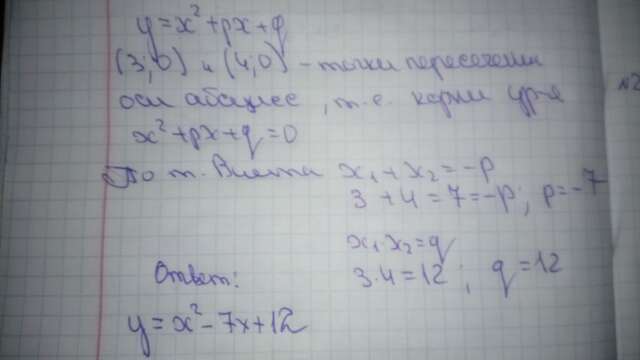 y = x² + px + q
(3; 0) и (4; 0) - точки пересечения
оси абсцисс, т.е. корни ур-я
x² + px + q = 0
По т. Виета x₁ + x₂ = -p
3 + 4 = 7 = -p; p = -7
x₁ x₂ = q
3·4 = 12; q = 12
Ответ:
y = x² - 7x + 12
№2